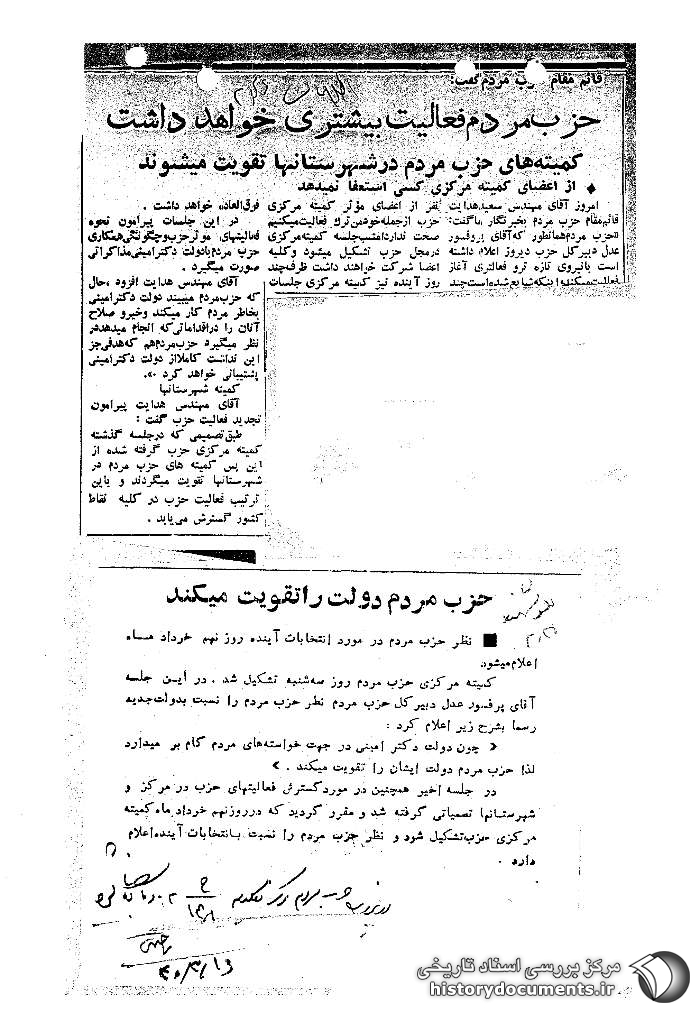 قائم مقام حزب مردم گفت:
حزب مردم فعالیت بیشتری خواهد داشت
کمیته‌های حزب مردم درشهرستانها تقویت میشوند
♦ از اعضای کمیته مرکزی کسی استعفا نمیدهد
امروز آقای مهندس سعیدهدایت
قائم‌مقام حزب مردم بخبرنگار ماگفت:
حزب مردم‌همانطور که‌آقای پروفسور
عدل دبیرکل حزب دیروز اعلام داشته
است بانیروی تازه ترو فعالتری آغاز
فعالیت‌میکندو اینکه‌شایع شده‌است‌چند
نفر از اعضای مؤثر کمیته مرکزی
حزب ازجمله‌خودمن‌ترك فعالیت‌میکنیم
صحت نداردامشب‌جلسه کمیته‌مرکزی
درمحل حزب تشکیل میشود وکلیه
اعضا شرکت خواهند داشت ظرف‌چند
روز آینده نیز کمیته مرکزی جلسات
فوق‌العاده خواهد داشت .
در این جلسات پیرامون نحوه
فعالیتهای موثرحزب‌وچگونگی‌همکاری
حزب مردم‌بادولت دکترامینی‌مذاکراتی
صورت میگیرد .
آقای مهندس هدایت افزود ،حال
که حزب‌مردم میبیند دولت دکترامینی
بخاطر مردم کار میکند وخیرو صلاح
آنان را دراقداماتی‌که انجام میدهددر
نظر میگیرد حزب‌مردم‌هم که‌هدفی‌جز
این نداشت کاملااز دولت دکترامینی
پشتیبانی خواهد کرد .»
کمیته شهرستانها
آقای مهندس هدایت پیرامون
تجدید فعالیت حزب گفت :
طبق‌تصمیمی که درجلسه گذشته
کمیته مرکزی حزب گرفته شده از
این پس کمیته های حزب مردم در
شهرستانها تقویت میگردند و باین
ترتیب فعالیت حزب در کلیه نقاط
کشور گسترش می‌یابد .
حزب مردم دولت راتقویت میکند
■ نظر حزب مردم در مورد انتخابات آینده روز نهم خرداد مـاه
اعلام‌میشود
کمیته مرکزی حزب مردم روز سه‌شنبه تشکیل شد . در ایـن جلسه
آقای پرفسور عدل دبیرکل حزب مردم نظر حزب مردم را نسبت بدولت‌جدید
رسما بشرح زیر اعلام کرد :
« چون دولت دکتر امینی در جهت خواسته‌های مردم گام بر میدارد
لذا حزب مردم دولت ایشان را تقویت میکند . »
در جلسه اخیر همچنین در موردگسترش فعالیتهای حزب در مرکز و
شهرستانها تصمیاتی گرفته شد و مقرر گردید که درروزنهم خرداد ماه‌کمیته
مرکزی حزب‌تشکیل شود و نظر حزب مردم را نسبت بـانتخابات آینده‌اعلام
دارد .
۴۰/۳/۱۳
مرکز بررسی اسناد تاریخی
historydocuments.ir